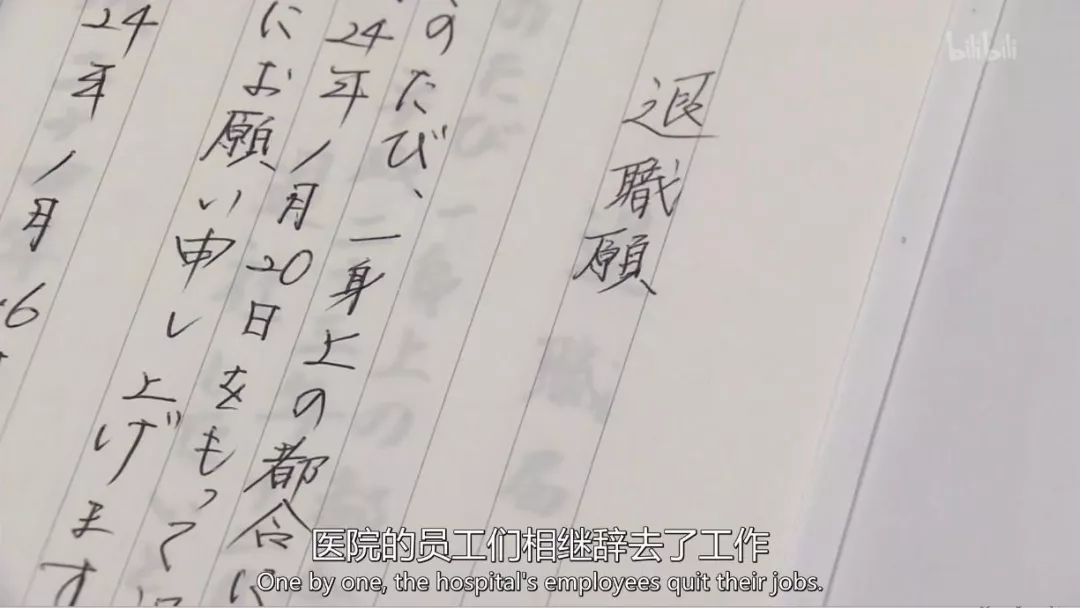 退職願
のたび、一身上の都合に
24年1月20日をもって
にお願い申し上げます
24年1月
bilibili
医院的员工们相继辞去了工作
One by one, the hospital's employees quit their jobs.